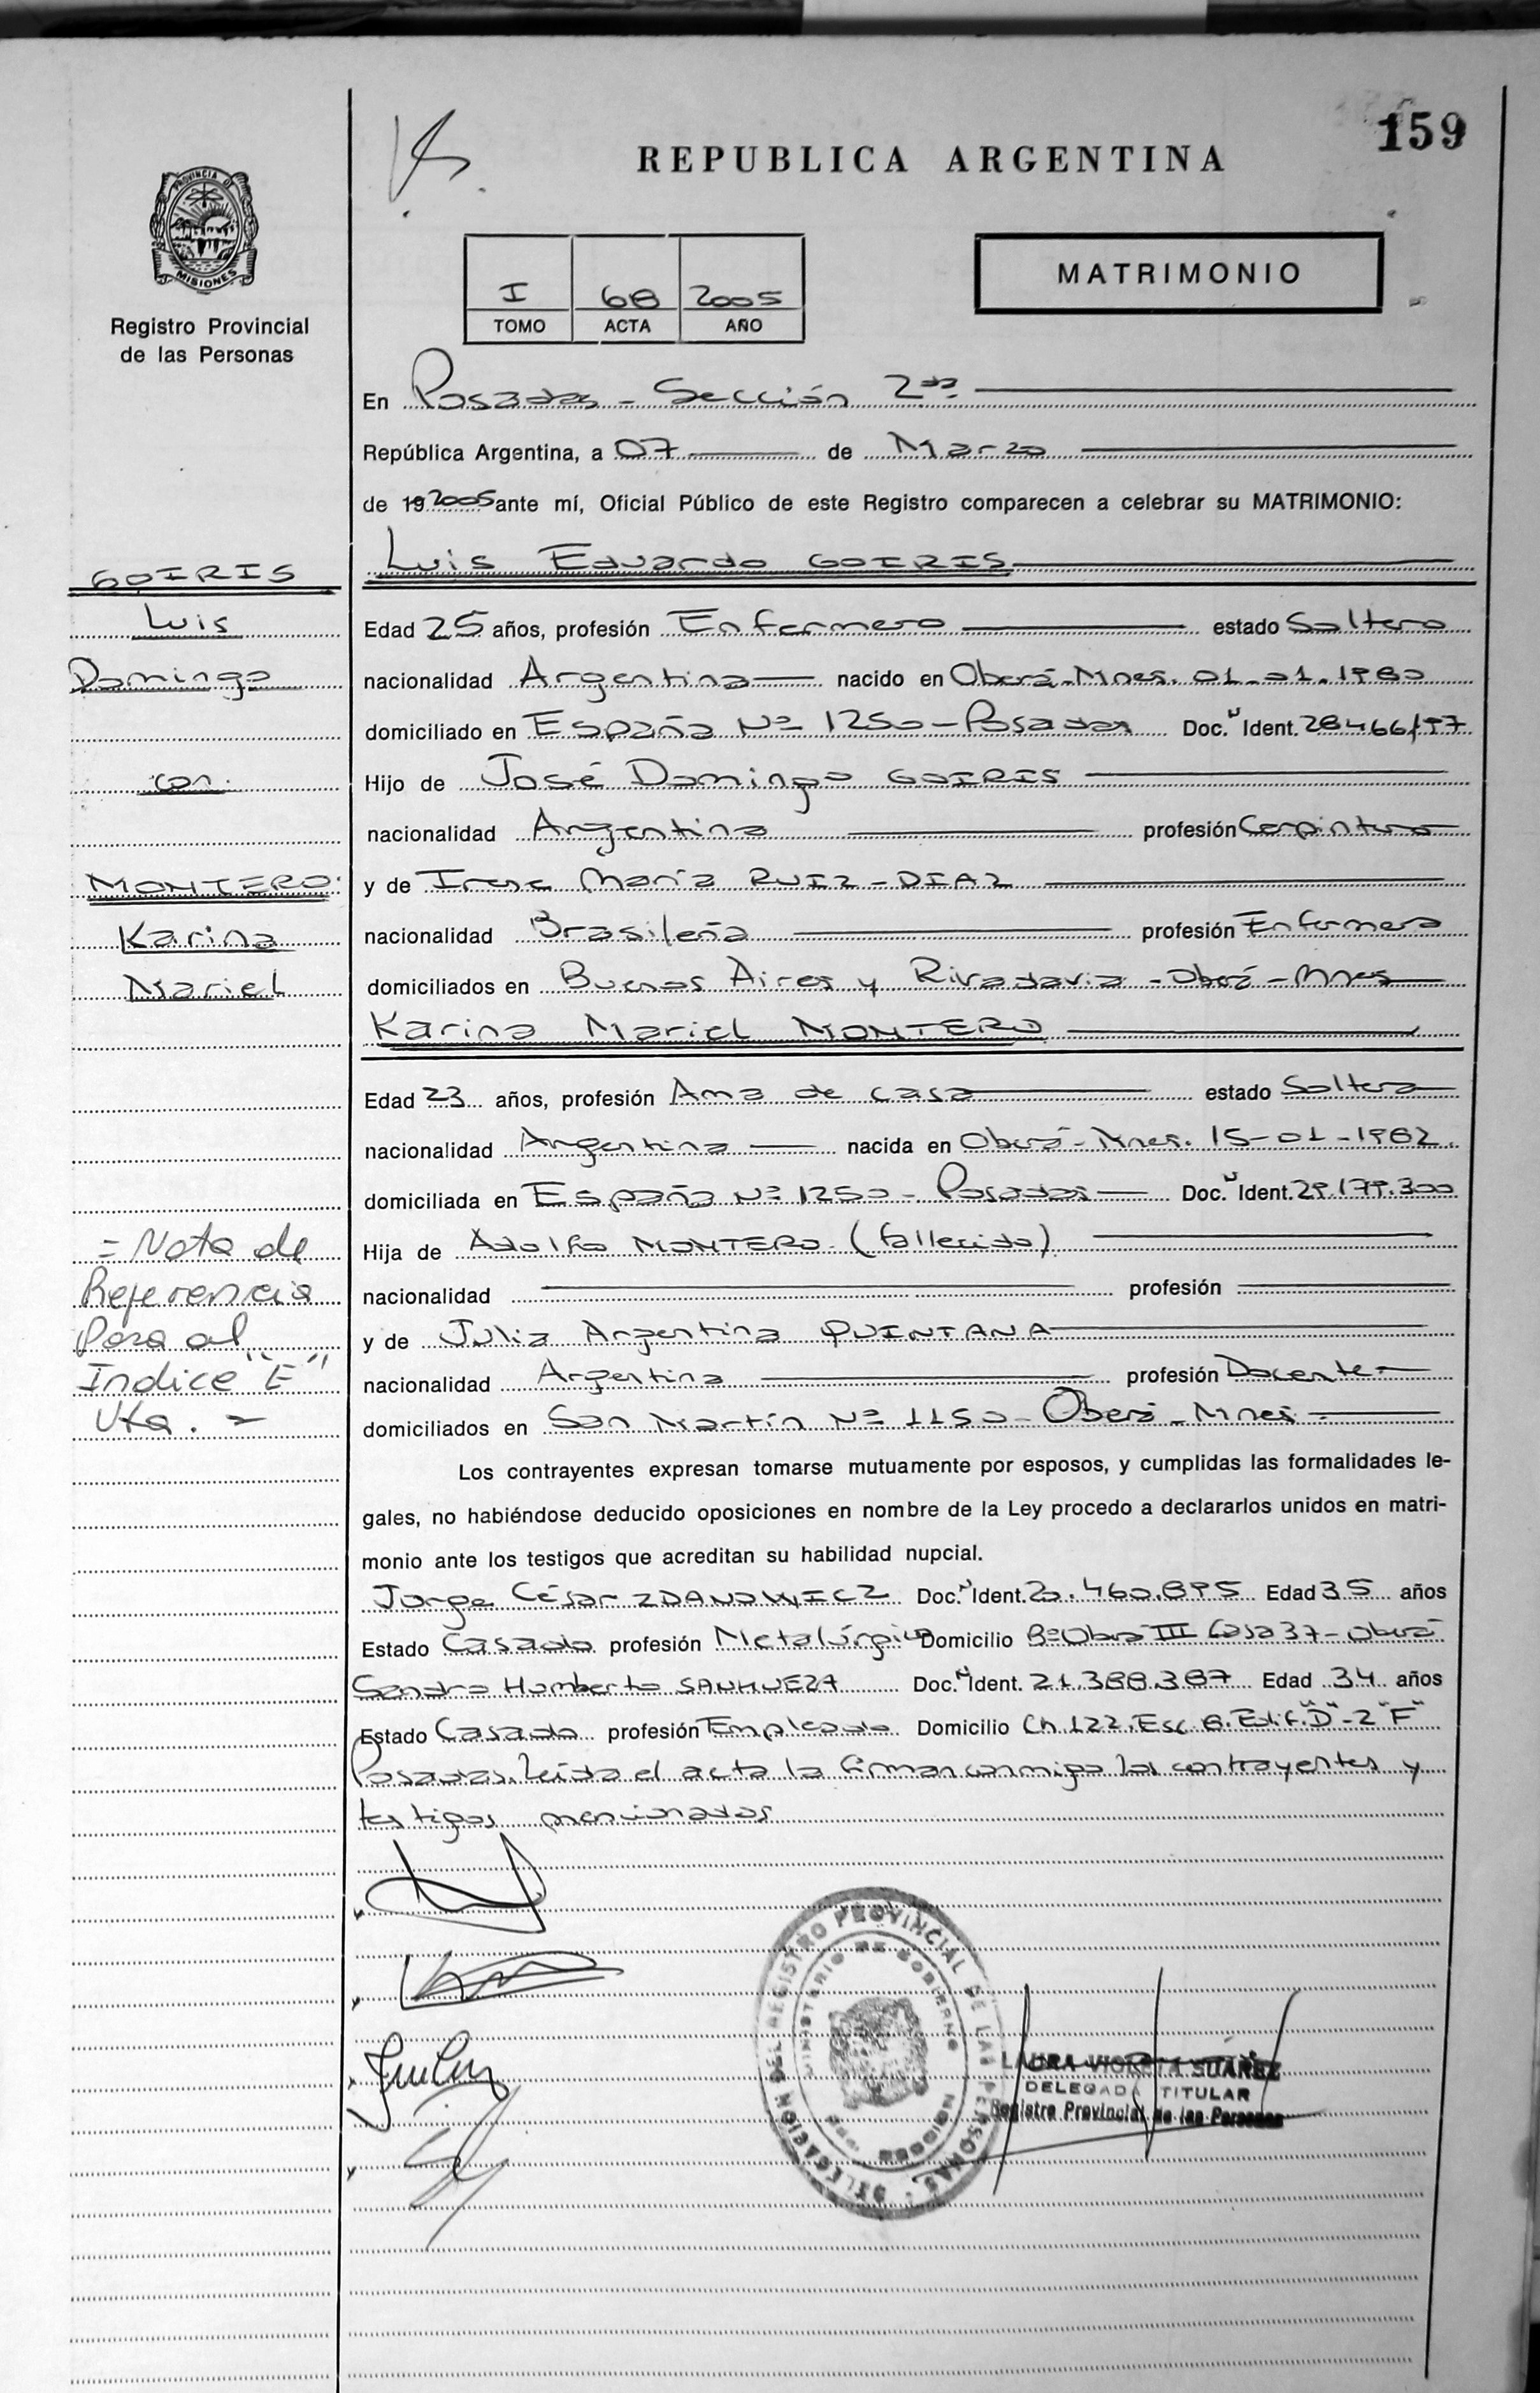 159
REPUBLICA ARGENTINA
PROVINCIA D
MISIONES
Registro Provincial
de las Personas
MATRIMONIO
I 68 2005
TOMO ACTA AÑO
En Posadas - Sección 2da
República Argentina, a 07 de Marzo
de 19 2005 ante mí, Oficial Público de este Registro comparecen a celebrar su MATRIMONIO:
Luis Eduardo GOIRIS
Edad 25 años, profesión Enfermero estado Soltero
nacionalidad Argentina nacido en Oberá-Mnes. 01-01.1980
domiciliado en España Nº 1250-Posadas Doc. N Ident.
Hijo de José Domingo GOIRIS
nacionalidad Argentina profesión Carpintero
y de Irene María RUIZ-DIAZ
nacionalidad Brasileña profesión Enfermera
domiciliados en Buenos Aires y Rivadavia - Oberá - Mnes
Karina Mariel MONTERO
Edad 23 años, profesión Ama de casa estado Soltera
nacionalidad Argentina nacida en Oberá-Mnes. 15-01-1982.
domiciliada en España Nº 1250 - Posadas Doc. N Ident. 29.179.300
Hija de Adolfo MONTERO (fallecido)
nacionalidad profesión
y de Julia Argentina QUINTANA
nacionalidad Argentina profesión Docente-
domiciliados en San Martín Nº 1150 - Oberá - Mnes -
Los contrayentes expresan tomarse mutuamente por esposos, y cumplidas las formalidades le-
gales, no habiéndose deducido oposiciones en nombre de la Ley procedo a declararlos unidos en matri-
monio ante los testigos que acreditan su habilidad nupcial.
Jorge César ZDANOWICZ Doc. N Ident. 20.460.895 Edad 35 años
Estado Casado profesión Metalúrgico Domicilio Bº Oberá III Casa 37-Oberá
Sandro Humberto SANHUEZA Doc. N Ident. 21.388.387 Edad 34 años
Estado Casado profesión Empleado Domicilio Ch.122.Esc.8.Edif."D"-2"F"
Posadas. Leída el acta la firman conmigo los contrayentes y
testigos mencionados
GOIRIS
Luis
Domingo
con
MONTERO
Karina
Mariel
= Nota de
Referencia
Para al
Indice "E"
Uta. =
DELEGACION DEL REGISTRO PROVINCIAL DE LAS PERSONAS
MINISTERIO DE GOBIERNO
MISIONES
LAURA VIOLETA SUAREZ
DELEGADA TITULAR
Registro Provincial de las Personas